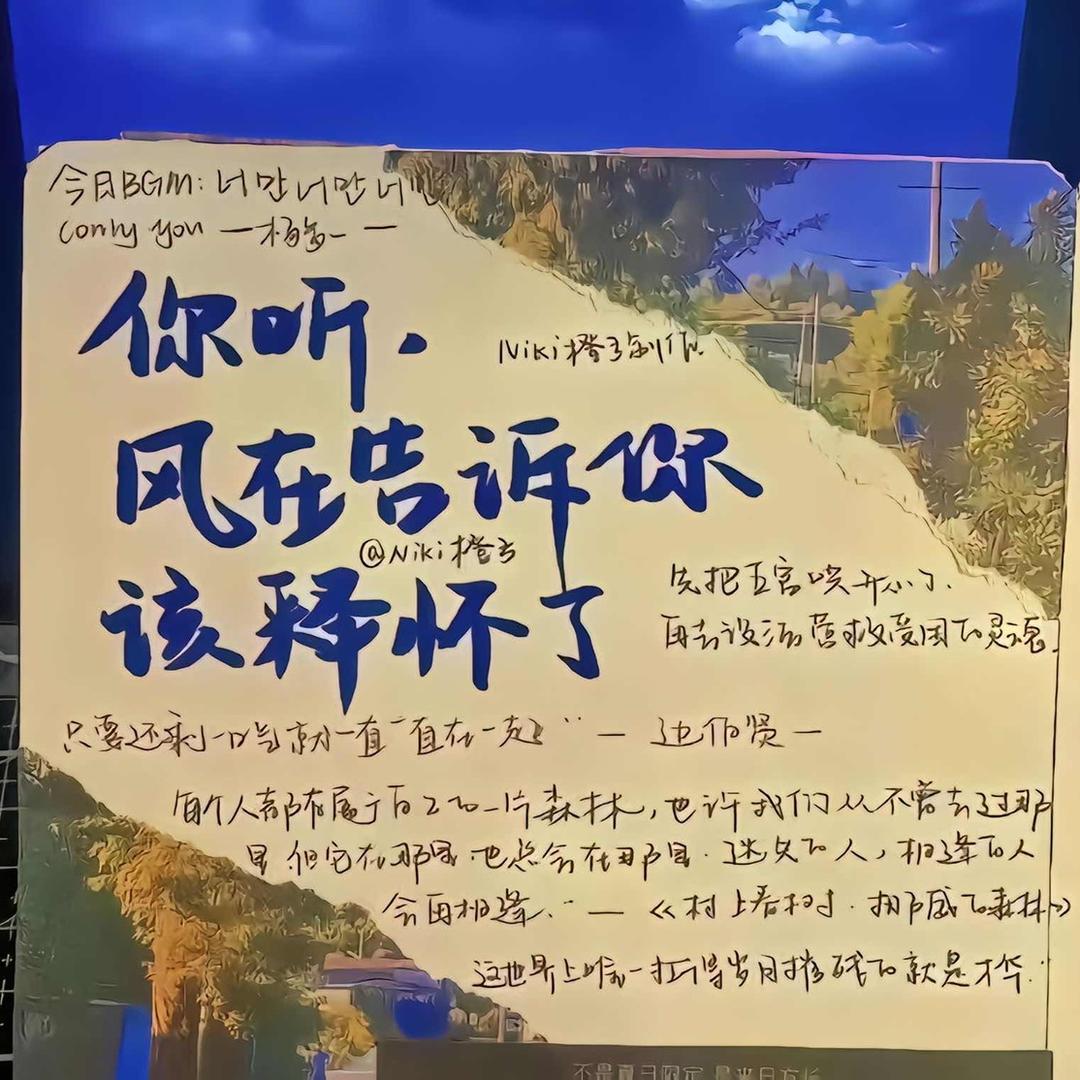 今日BGM:너만너만너만
(only you —杨
你听,
Niki橙子制作
风在告诉你
@Niki橙子
该释怀了
先把五官哄开心了,
再去设法营救受困的灵魂.
只要还剩一口气就一直一直在一起" — 边伯贤—
每个人都有属于自己的一片森林,也许我们从不曾去过那
里.但它在那里.也总会在那里.迷失的人,相逢的人
会再相逢." — 《村上春树.挪威的森林》
这世界上唯一扛得岁月摧残的就是才华.